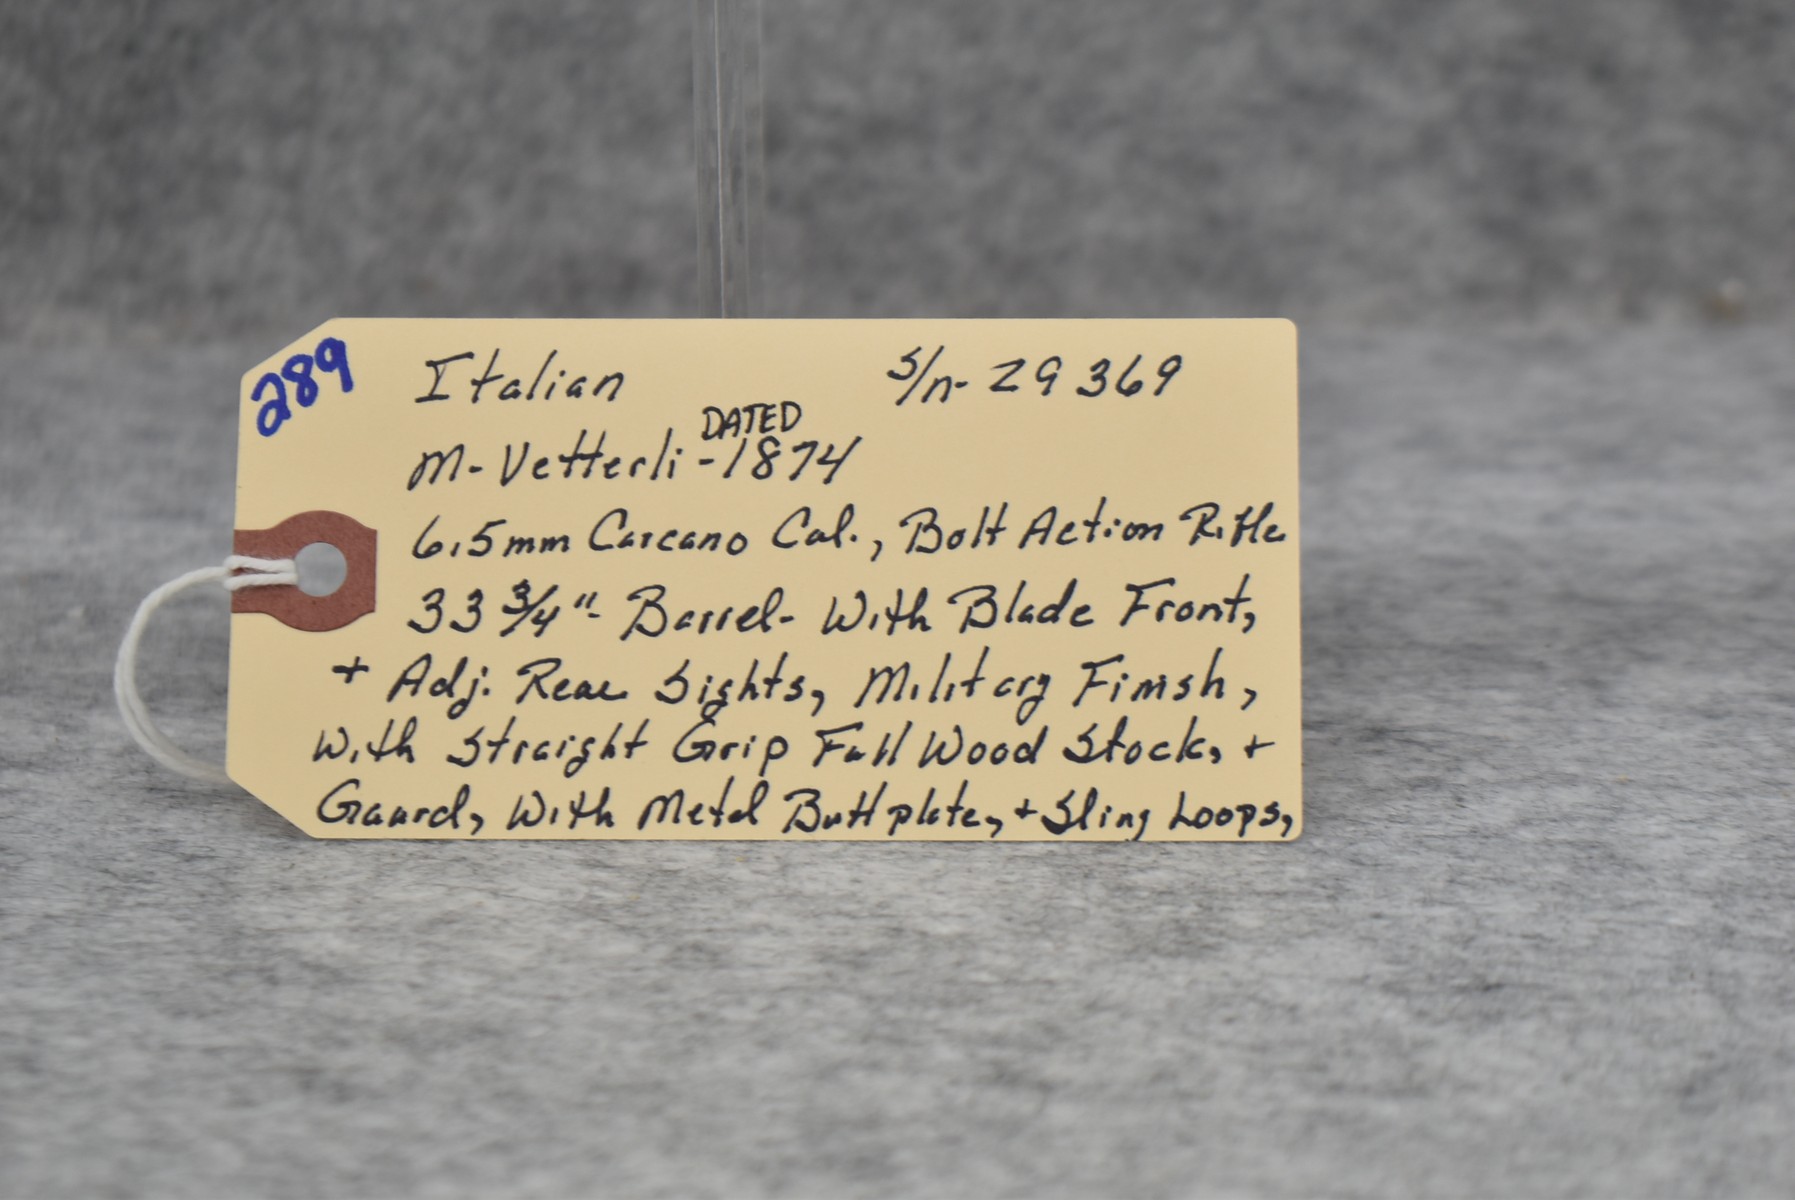 289
Italian S/n- 29369
DATED
M-Vetterli-1874
6.5mm Carcano Cal., Bolt Action Rifle
33 3/4"- Barrel- With Blade Front,
+ Adj. Rear Sights, Military Finish,
With Straight Grip Full Wood Stock, +
Guard, With Metal Buttplate, + Sling Loops,